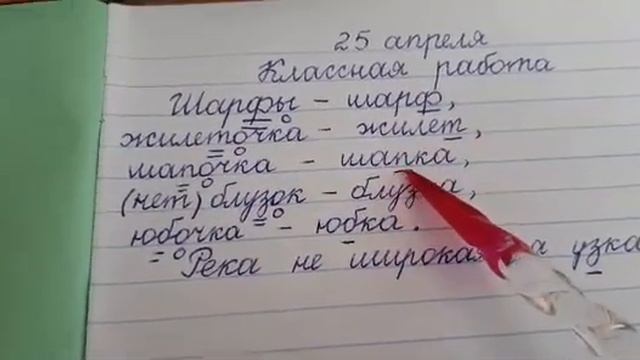 25 апреля
Классная работа
Шарфы - шарф,
жилеточка - жилет,
шапочка - шапка,
(нет) блузок - блузка,
юбочка - юбка.
Река не широкая а узка